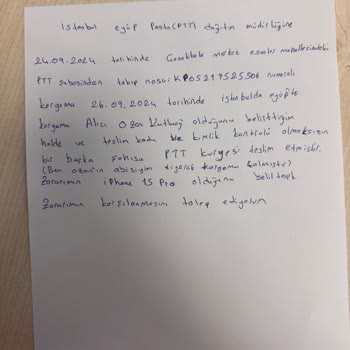 İstanbul eyüp Posta(PTT) dağıtım müdürlüğüne
24.09.2024 tarihinde Çanakkale merkez esenler mahallesindeki
PTT şubesinden takip nosu: KP05217525506 numaralı
kargomu 26.09.2024 tarihinde istanbulda eyüp'te
kargomu Alıcı Ozan olduğunu belirttiğim
halde ve teslim kodu ve kimlik kontrolü olmaksızın
bir başka şahısa PTT kuryesi teslim etmiştir.
(Ben ozan'ın abisiyim diyerek kargomu çalmıştır)
Zararımın iPhone 15 Pro olduğunu belirterek
Zararımın karşılanmasını talep ediyorum